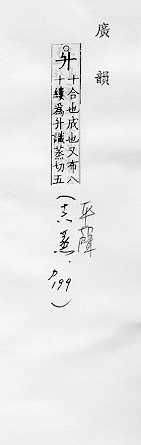 廣韻
升十合也成也又布八
十縷為升識蒸切五
平聲
(十六蒸．P199)